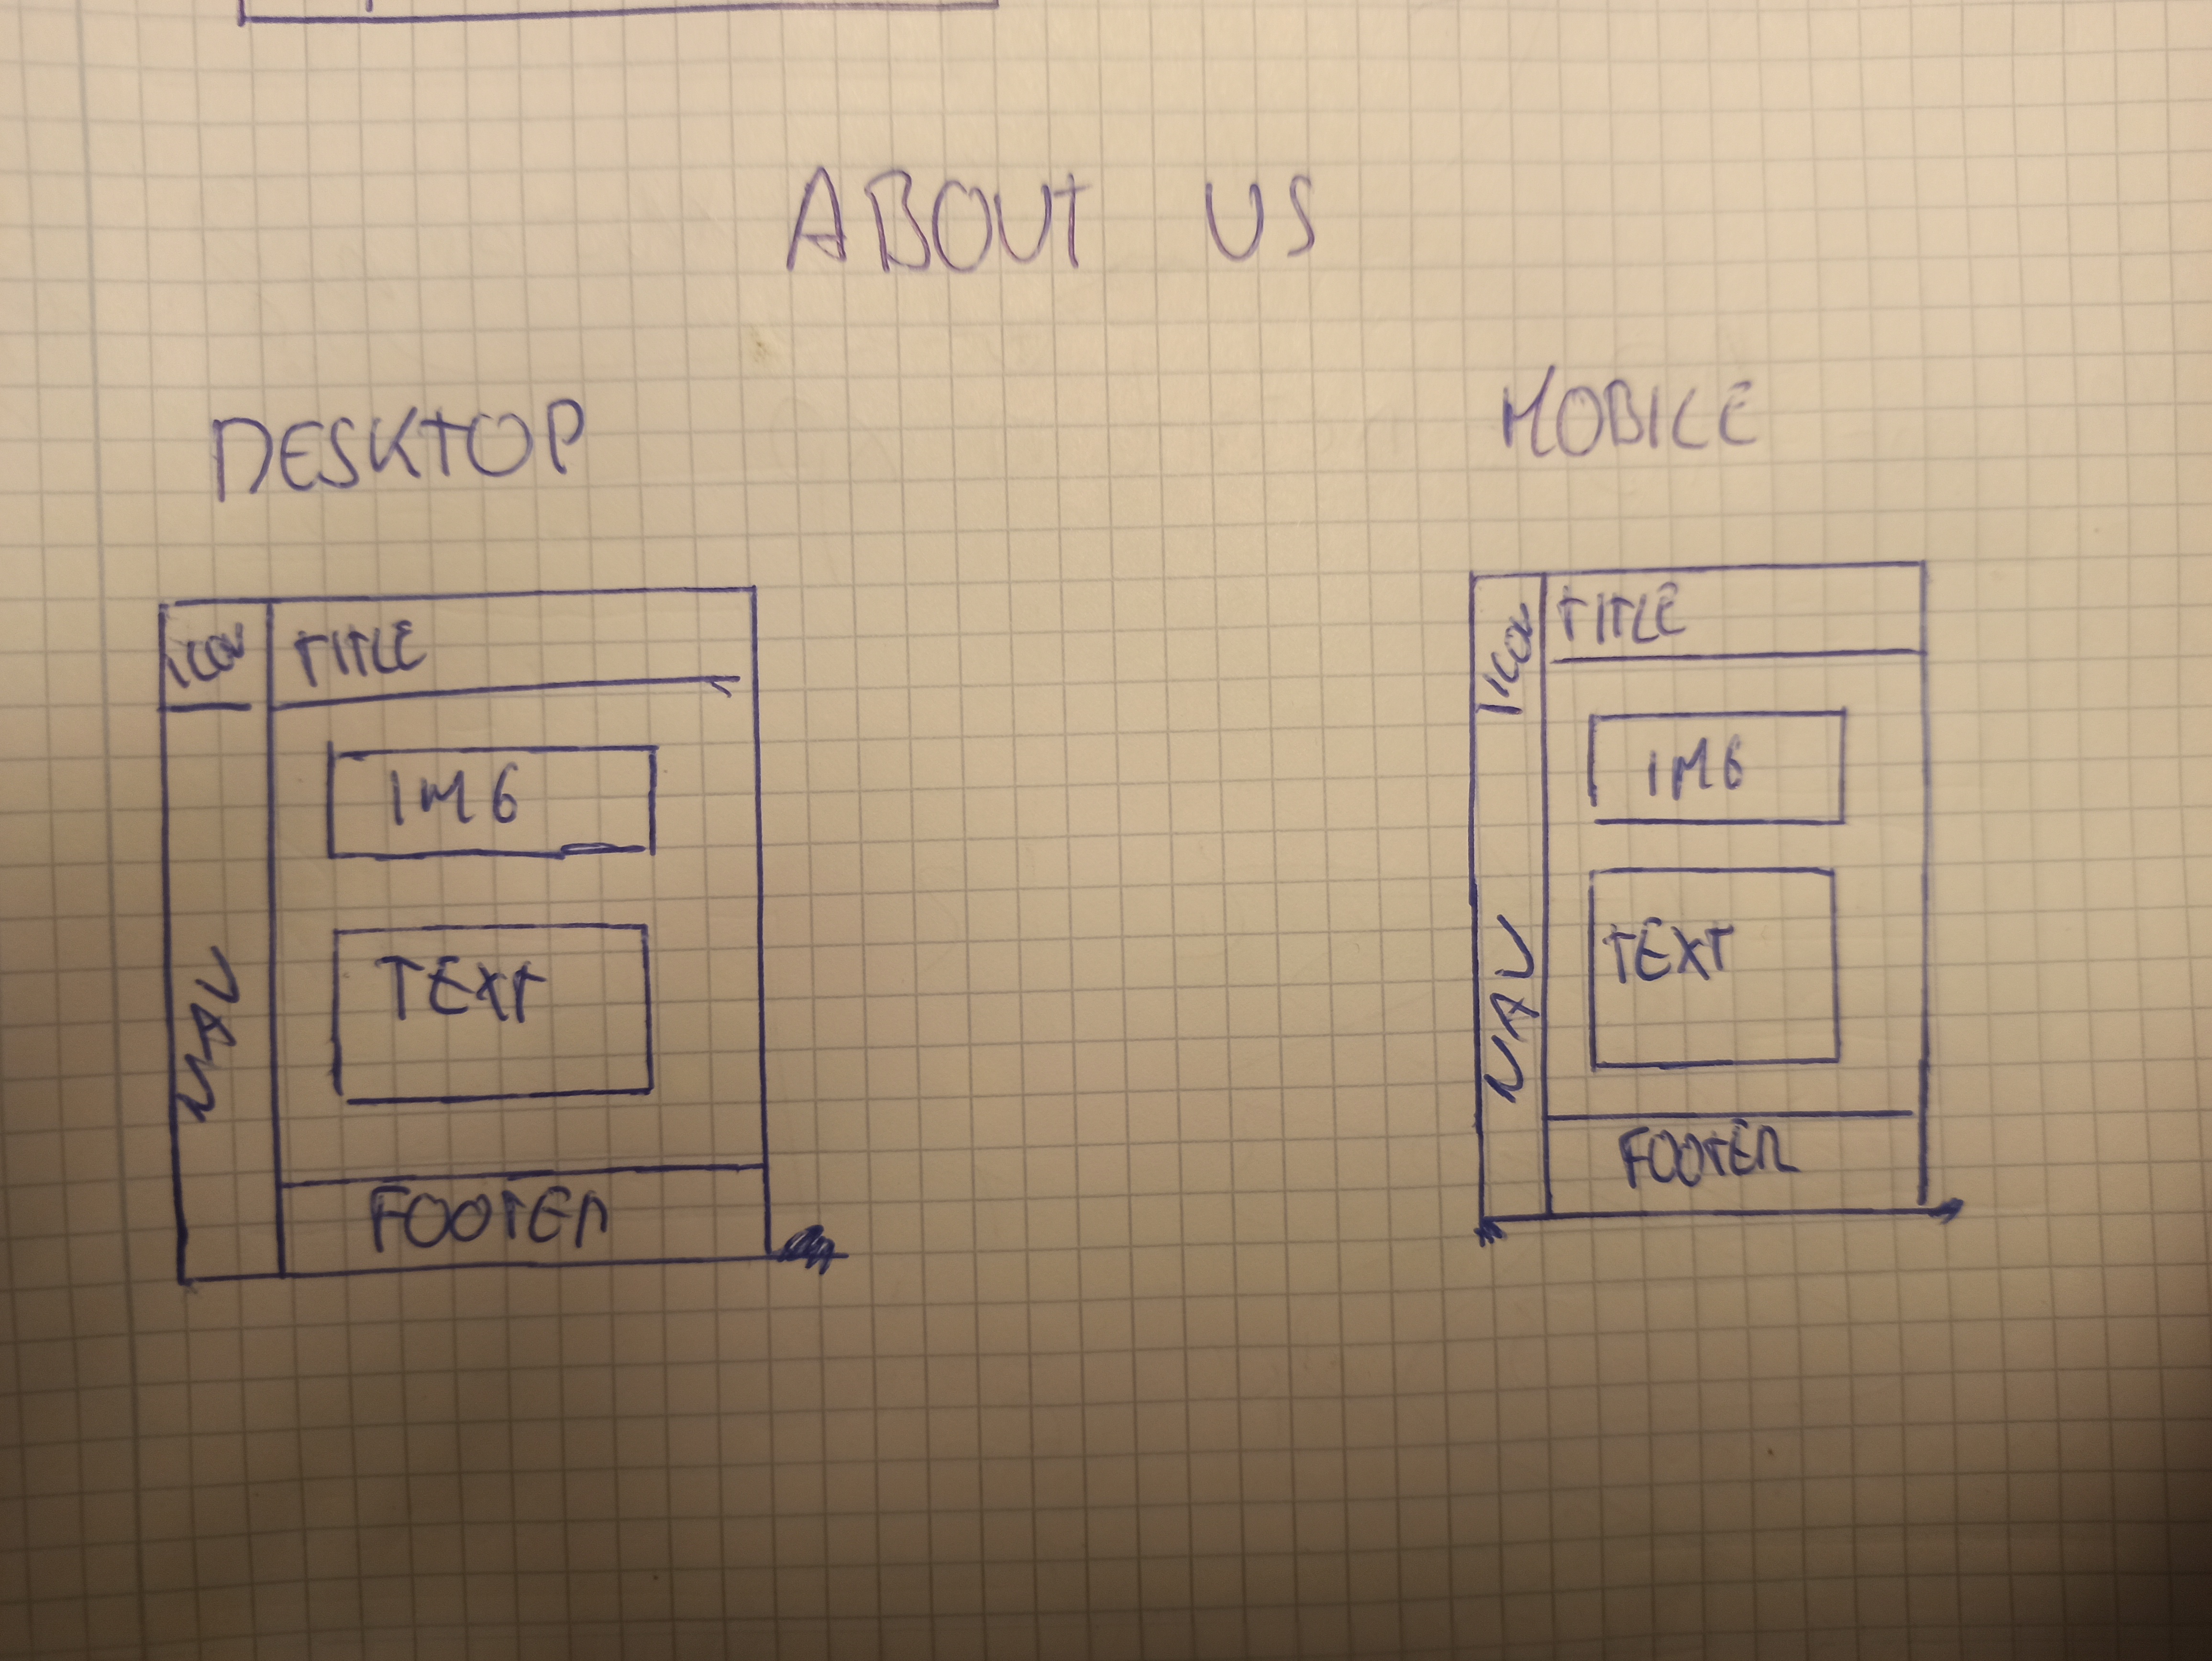 ABOUT US
DESKTOP
ICON
TITLE
IMG
TEXT
NAV
FOOTER
MOBILE
ICON
TITLE
IMG
TEXT
NAV
FOOTER